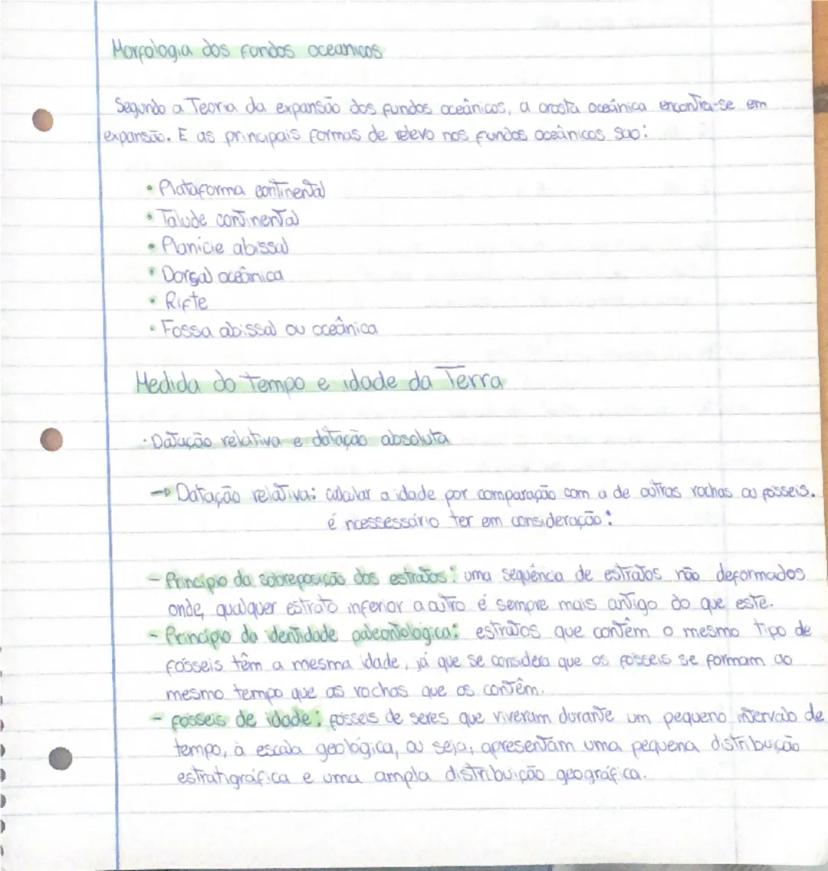 Morfologia dos fundos oceanicos
Segundo a Teoria da expansão dos fundos oceânicos, a crosta oceânica encontra-se em
expansão. E as principais formas de relevo nos fundos oceânicos são:
• Plataforma continental
• Talude continental
• Planície abissal
• Dorsal oceânica
• Rifte
• Fossa abissal ou oceânica
Medida do tempo e idade da Terra
· Datação relativa e datação absoluta
→ Datação relativa: calcular a idade por comparação com a de outras rochas ou fósseis.
é nessessário ter em consideração:
- Princípio da sobreposição dos estratos: uma sequência de estratos não deformados
onde, qualquer estrato inferior a outro é sempre mais antigo do que este.
- Princípio da identidade paleontológica: estratos que contêm o mesmo tipo de
fósseis têm a mesma idade, já que se considera que os fósseis se formam ao
mesmo tempo que as rochas que os contêm.
- fósseis de idade: fósseis de seres que viveram durante um pequeno intervalo de
tempo, à escala geológica, ou seja, apresentam uma pequena distribuição
estratigráfica e uma ampla distribuição geográfica.